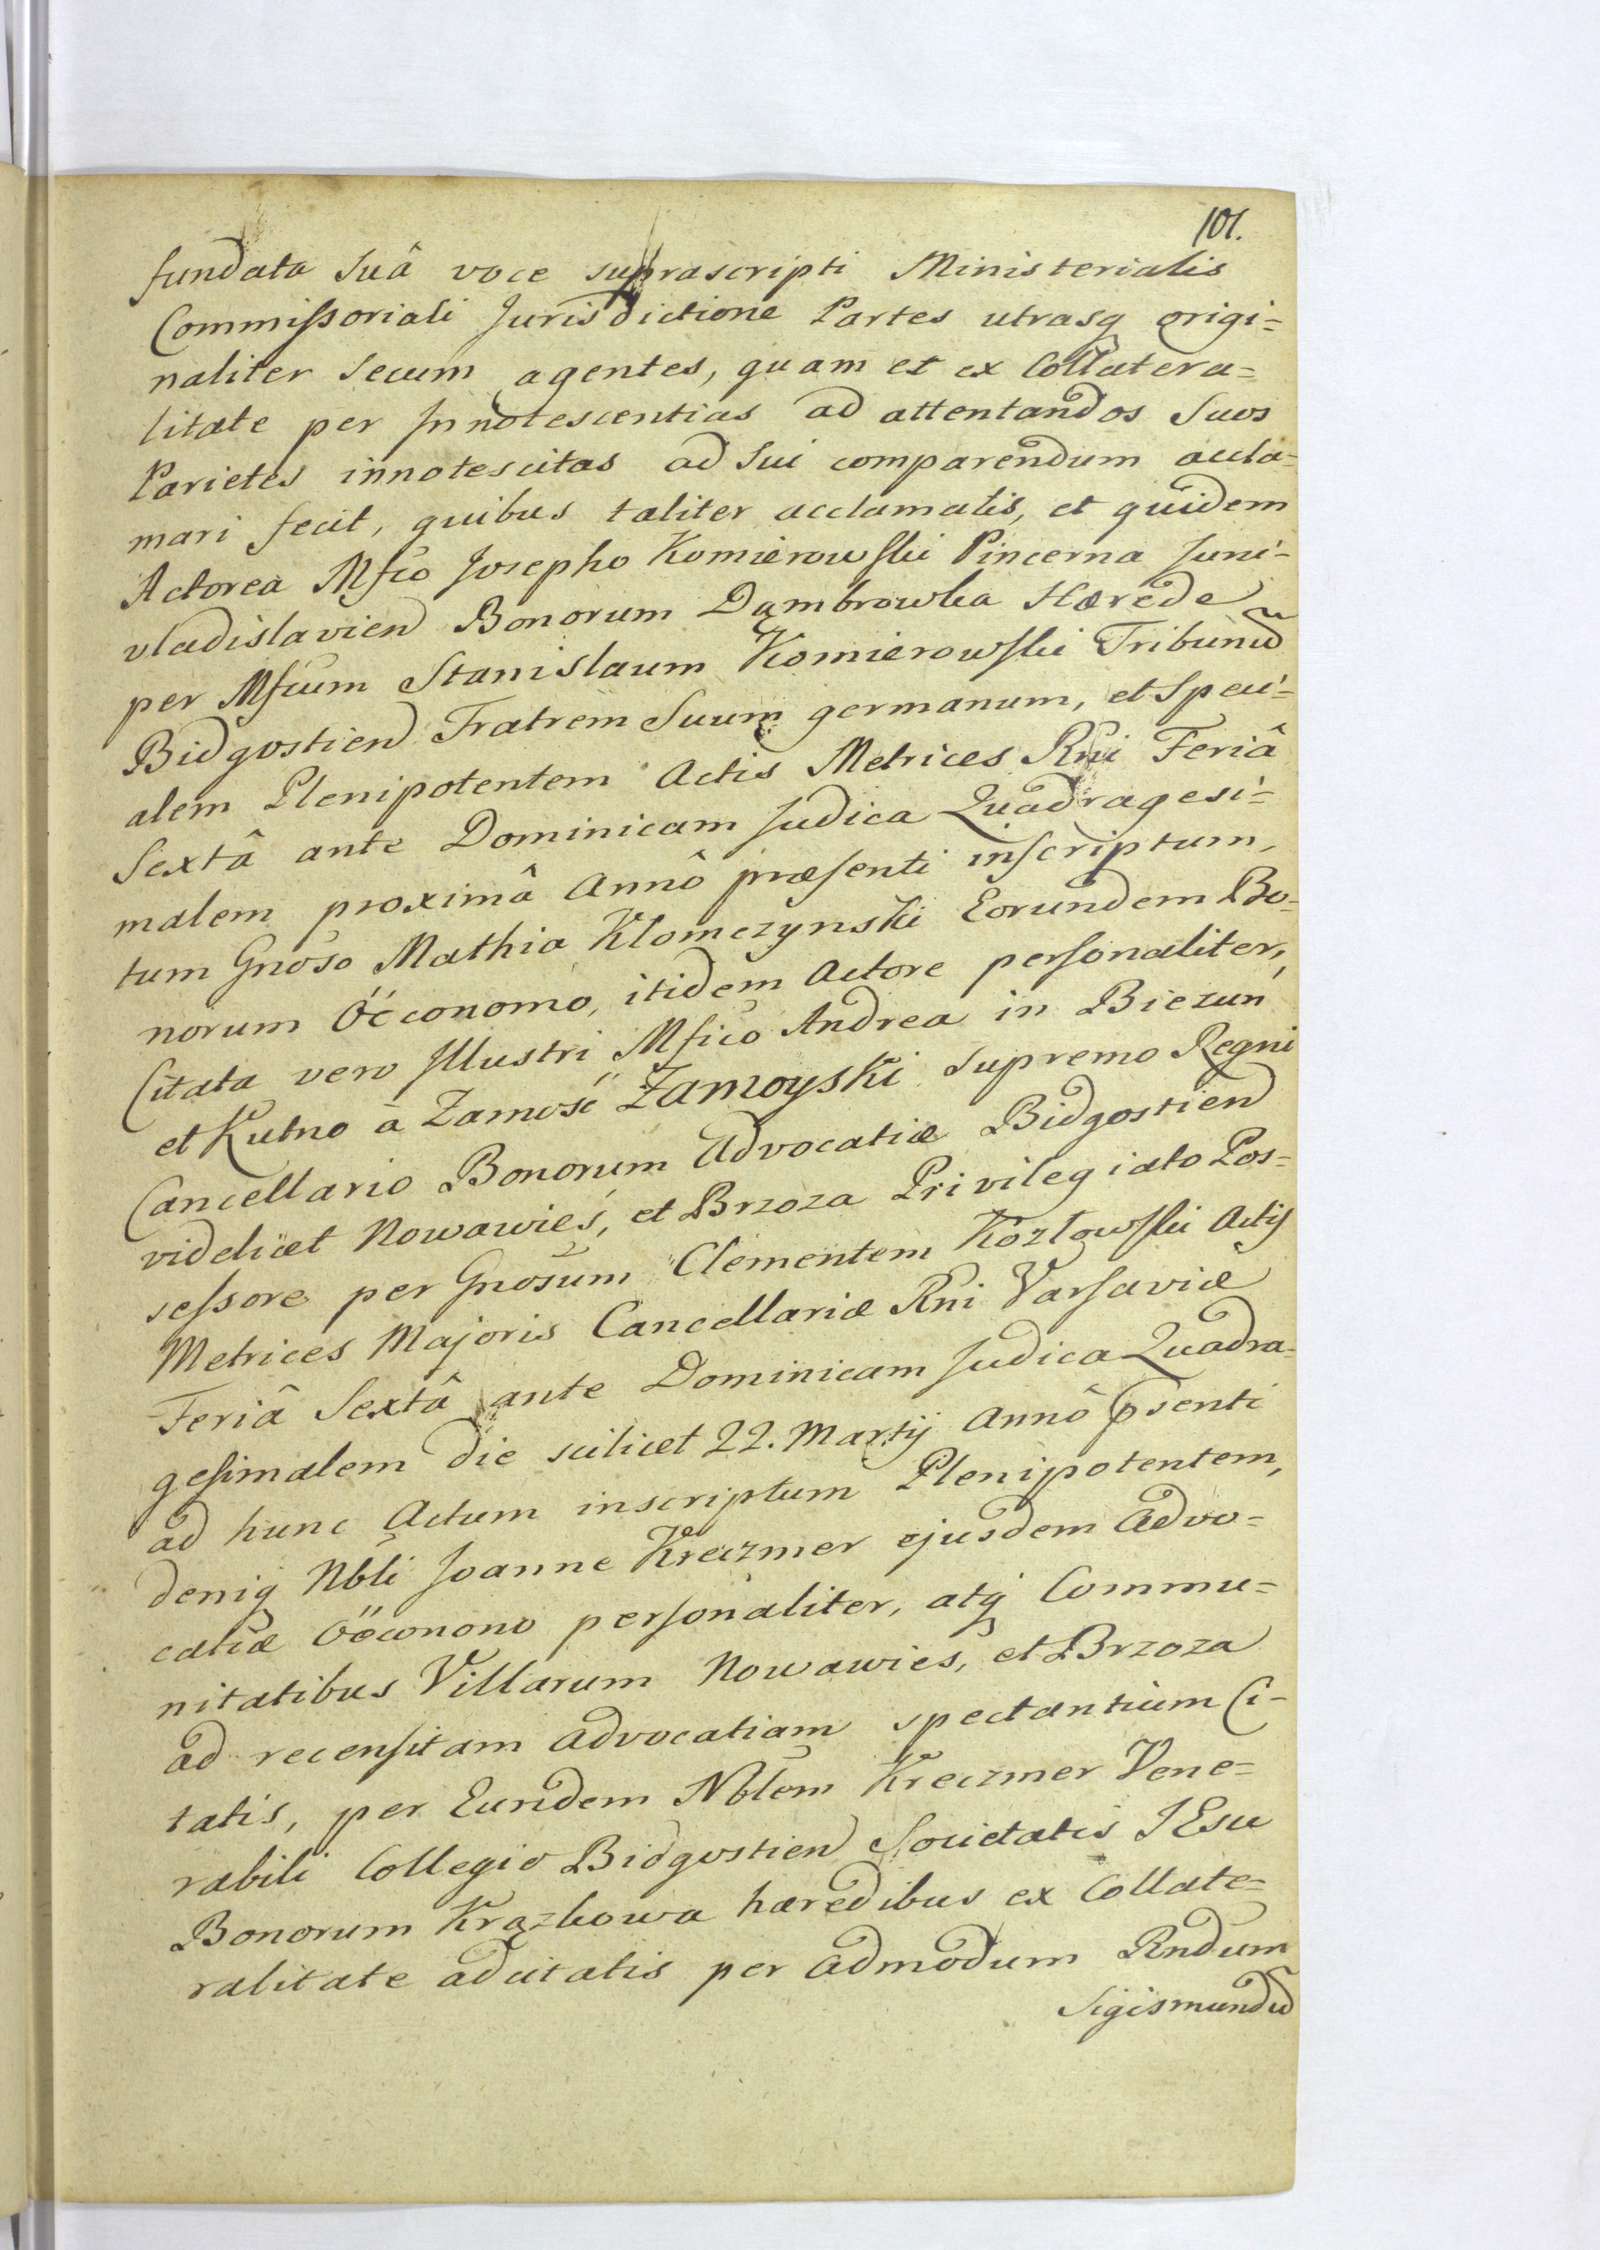 101.
fundata Suâ voce suprascripti Ministerialis
Commissoriali Jurisdictione Partes utrasq origi=
naliter Secum agentes, quam et ex Collatera=
litate per Innotescentias ad attentandos Suos
Parietes innotescitas ad Sui comparendum accla=
mari fecit, quibus taliter acclamatis, et quidem
Actorea Mfco Josepho Komierowski Pincerna Juni=
vladislavien Bonorum Dąmbrowka Hærede
per Mfcum Stanislaum Komierowski Tribunũ
Bidgostien Fratrem Suum germanum, et Speci=
alem Plenipotentem Actis Metrices Rni Feriâ
Sextâ ante Dominicam Judica Quadragesi=
malem proximâ Annô præsenti inscriptum,
tum Gnoso Mathia Klomczynski Eorundem Bo=
norum Oeconomo, itidem Actore personaliter,
Citata vero Illustri Mfico Andrea in Biezun
et Kutno à Zamość Zamoyski Supremo Regni
Cancellario Bonorum Advocatiæ Bidgostien
videlicet Nowawieś, et Brzoza Privilegiato Pos=
sessore per Gnosum Clementem Kozłowski Actis
Metrices Majoris Cancellariæ Rni Varsaviæ
Feriâ Sextâ ante Dominicam Judica Quadra=
gesimalem die scilicet 22. Martij Annô psenti
ad hunc Actum inscriptum Plenipotentem,
deniq Nbli Joanne Kreczmer ejusdem Advo=
catiæ Oeconono personaliter, atq Commu=
nitatibus Villarum Nowawieś, et Brzoza
ad recensitam Advocatiam spectantium Ci=
tatis, per Eundem Nblem Kreczmer Vene=
rabili Collegio Bidgostien Societatis JEsu
Bonorum Krążkowa hæredibus ex Collate=
ralitate adcitatis per Admodum Rndum
Sigismundũ